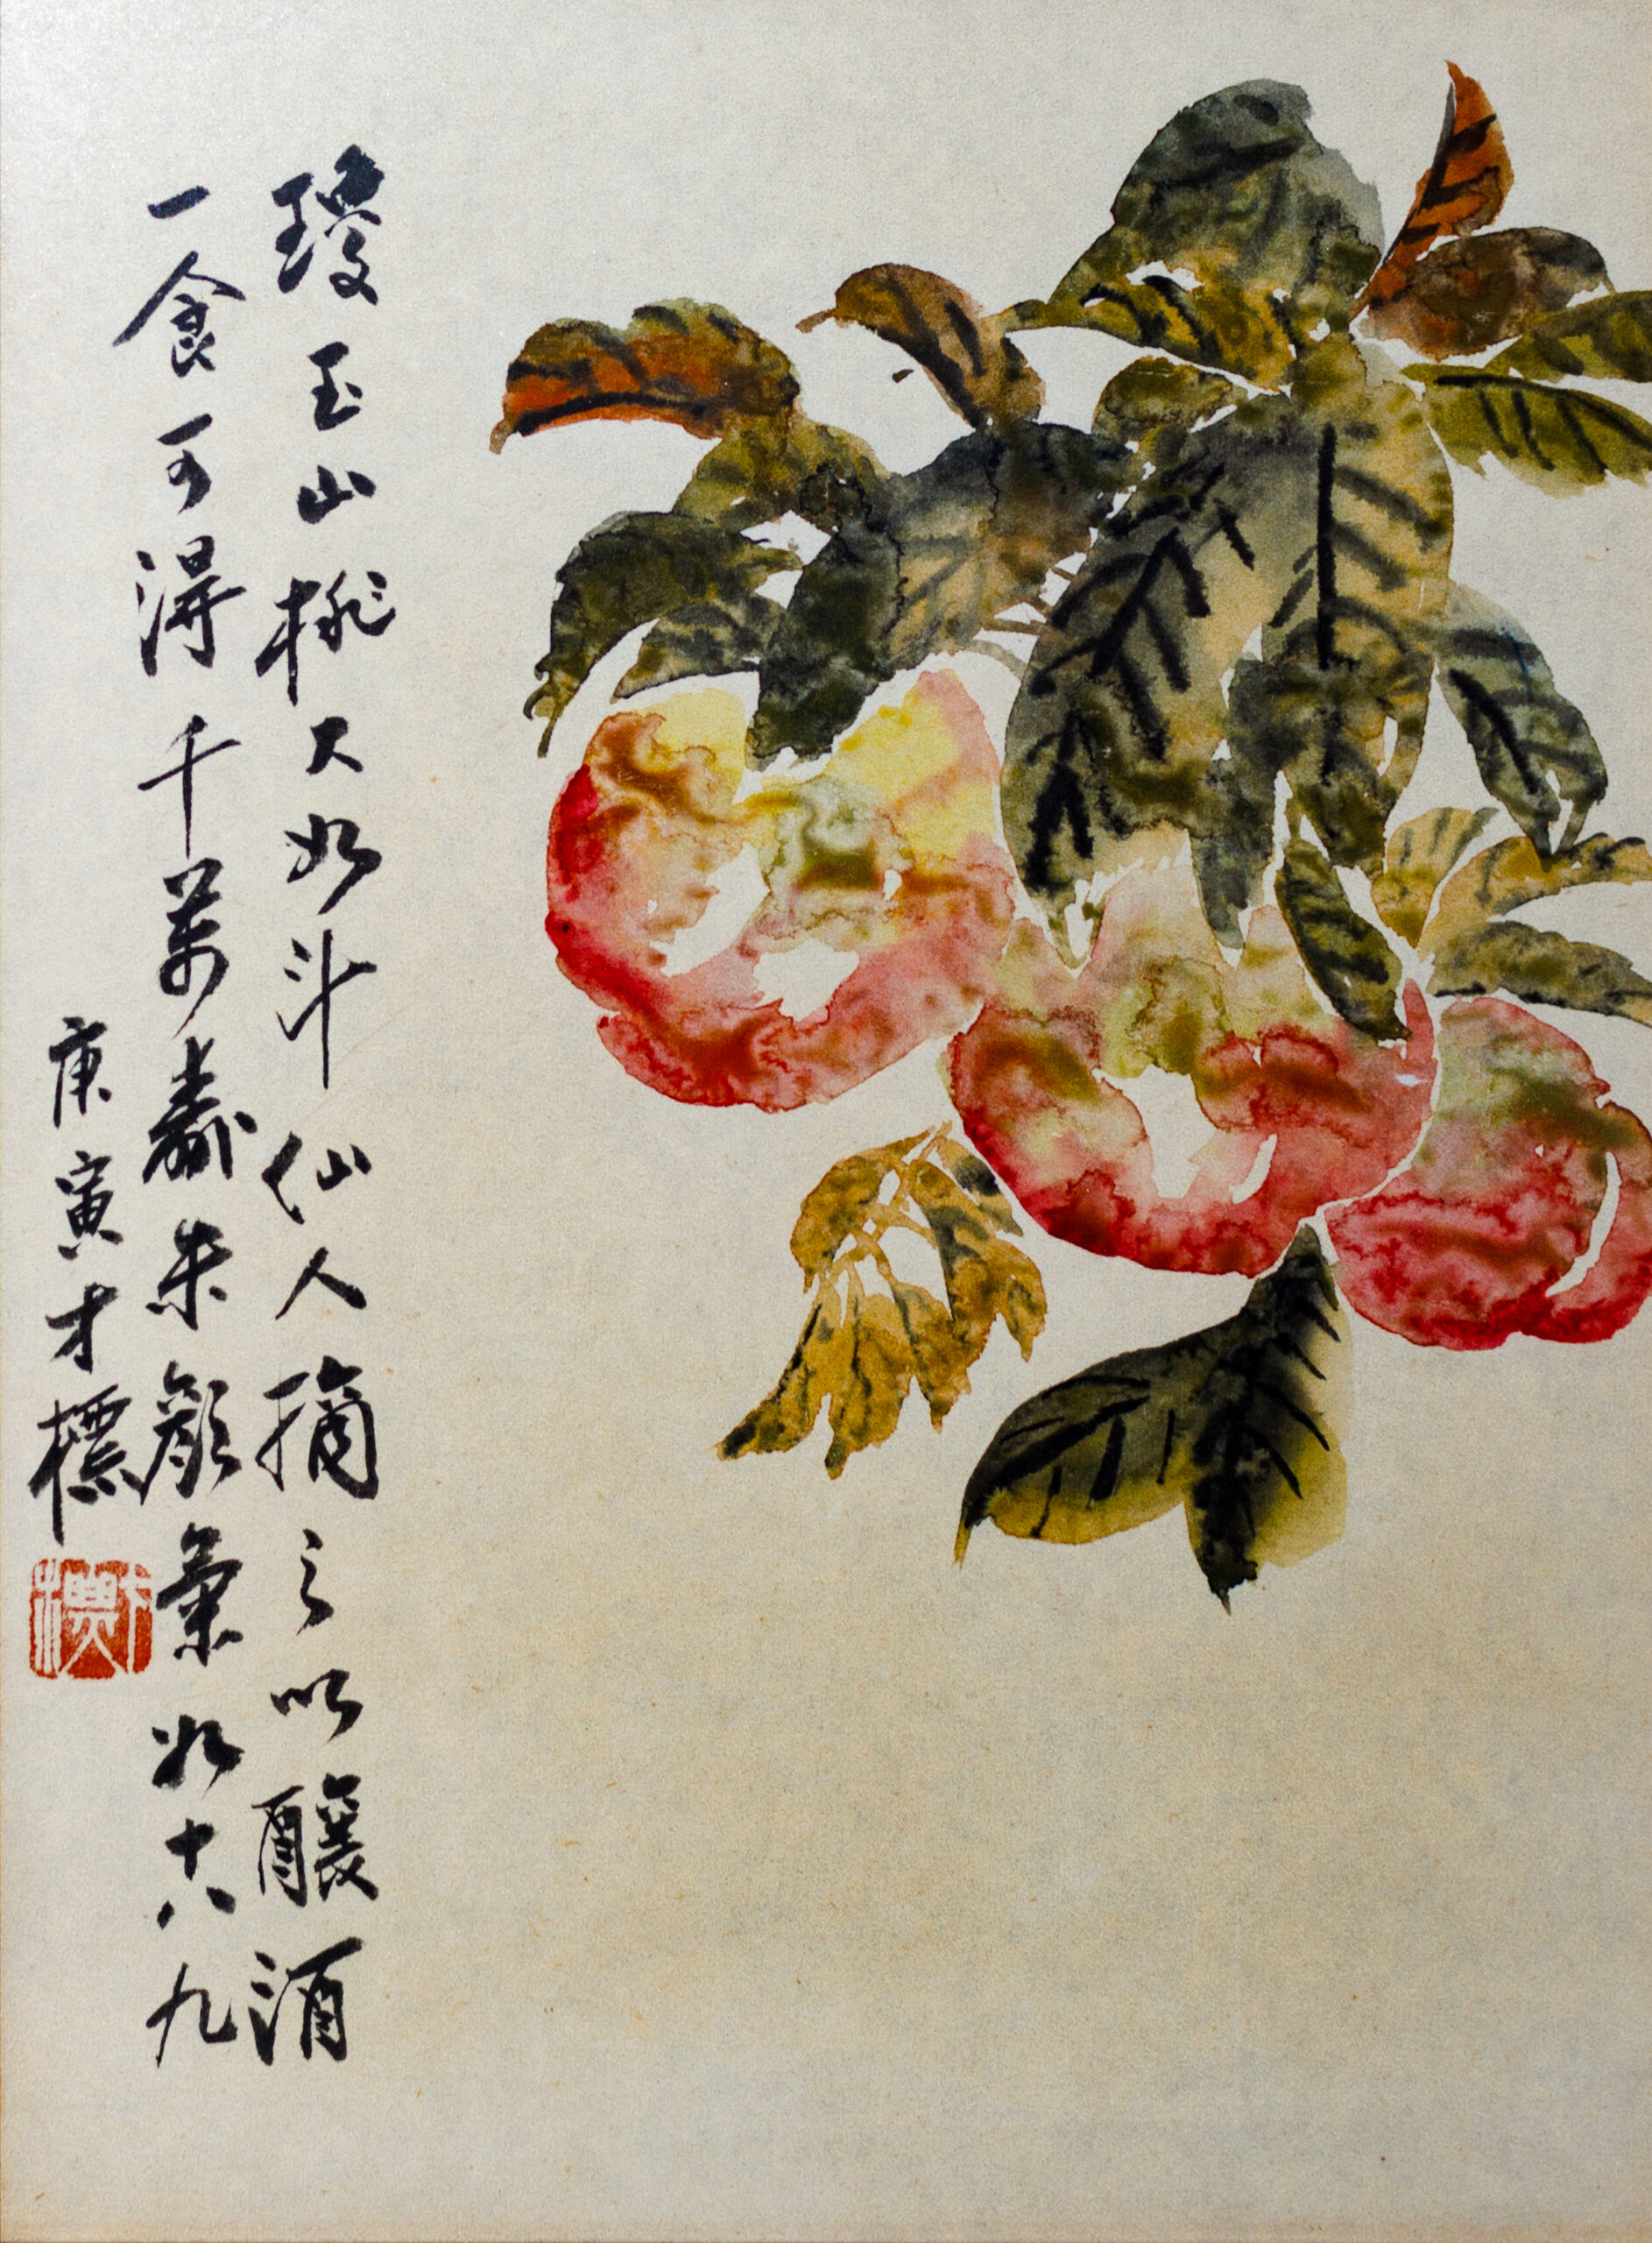 瓊玉山桃大如斗仙人摘之以釀酒
一食可得千萬壽朱顏氣如十八九
庚寅才標